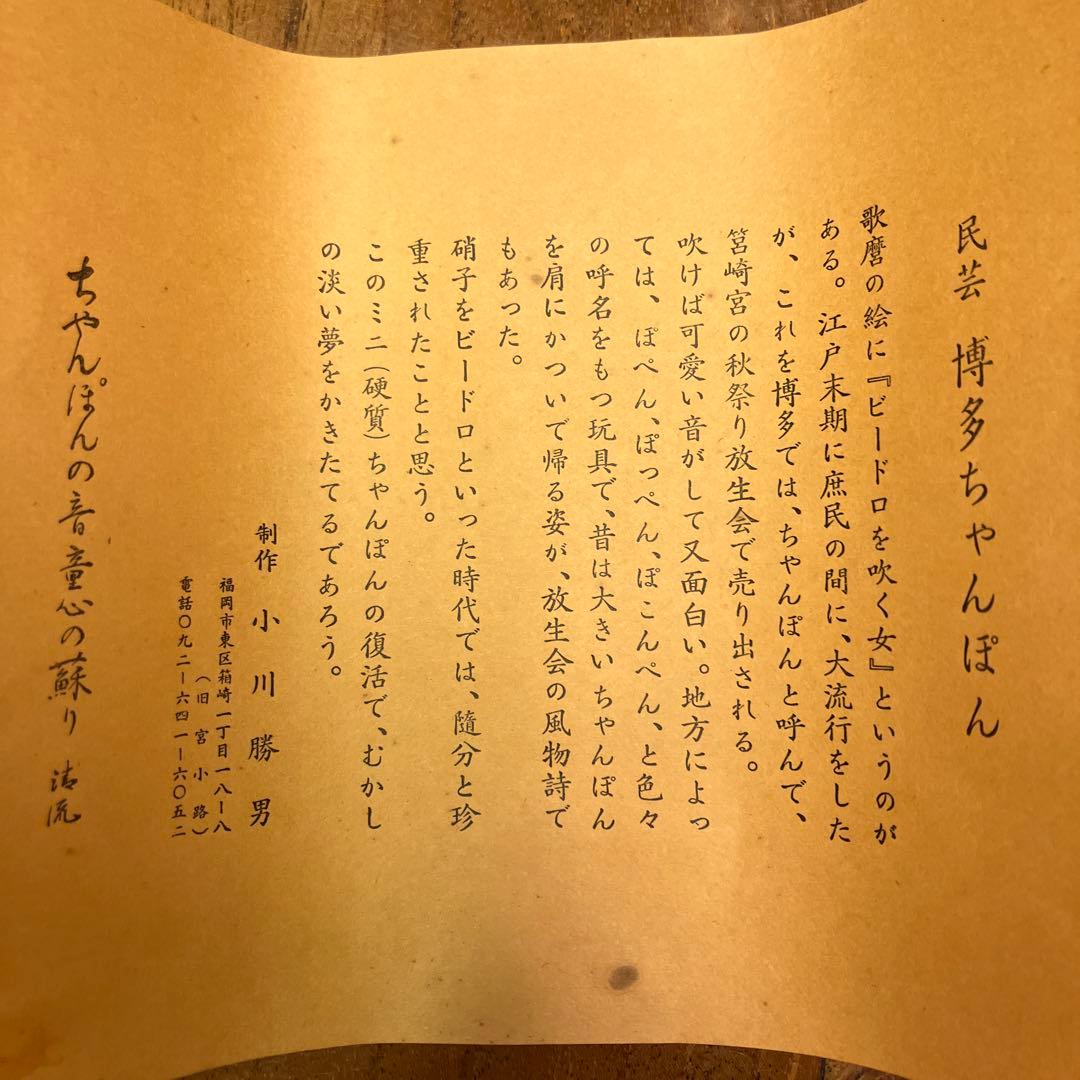 民芸 博多ちゃんぽん
歌麿の絵に『ビードロを吹く女』というのが
ある。江戸末期に庶民の間に、大流行をした
が、これを博多では、ちゃんぽんと呼んで、
筥崎宮の秋祭り放生会で売り出される。
吹けば可愛い音がして又面白い。地方によっ
ては、ぽぺん、ぽっぺん、ぽこんぺん、と色々
の呼名をもつ玩具で、昔は大きいちゃんぽん
を肩にかついで帰る姿が、放生会の風物詩で
もあった。
硝子をビードロといった時代では、随分と珍
重されたことと思う。
このミニ(硬質)ちゃんぽんの復活で、むかし
の淡い夢をかきたてるであろう。
制作 小川勝男
福岡市東区箱崎一丁目一八ー八
(旧宮小路)
電話〇九二ー六四一ー六〇五二
ちやんぽんの音童心の蘇り 清流